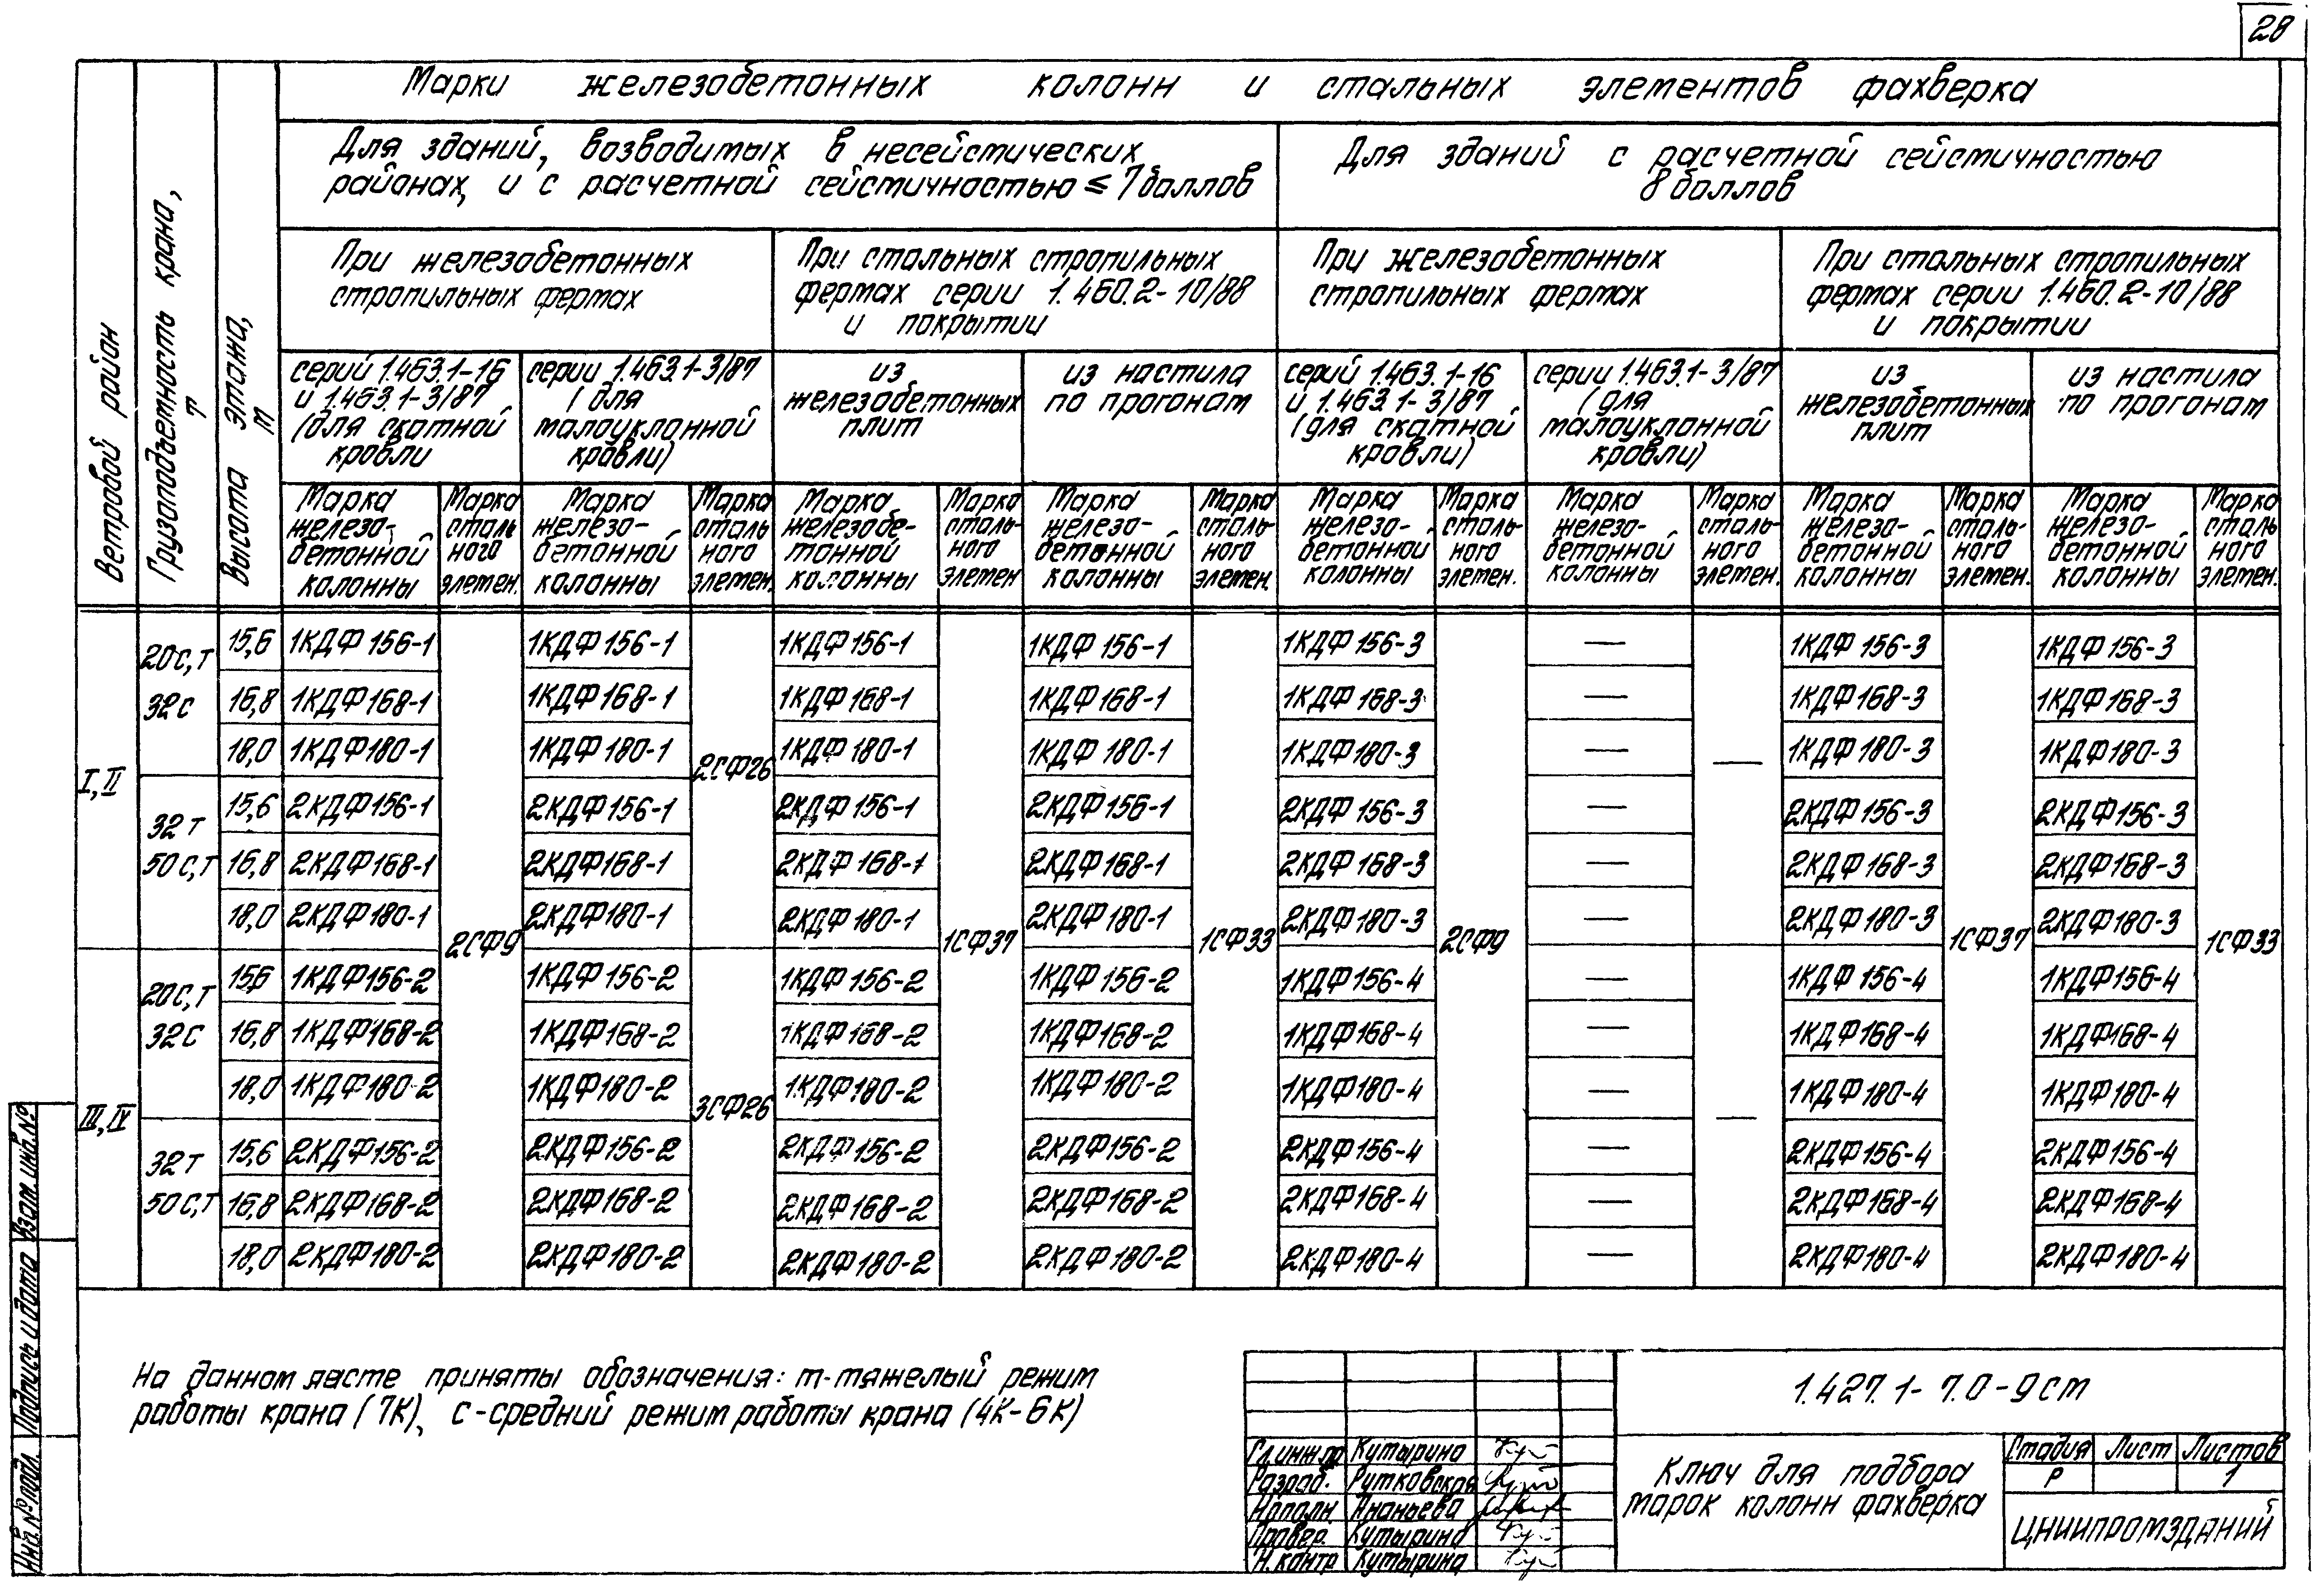 28
Марки железобетонных колонн и стальных элементов фахверка
Ветровой район
Грузоподъемность крана, т
Высота этажа, м
Для зданий, возводимых в несейсмических
районах, и с расчетной сейсмичностью ≤ 7 баллов
Для зданий с расчетной сейсмичностью
8 баллов
При железобетонных
стропильных фермах
При стальных стропильных
фермах серии 1.460.2-10/88
и покрытии
При железобетонных
стропильных фермах
При стальных стропильных
фермах серии 1.460.2-10/88
и покрытии
серий 1.463.1-16
и 1.463.1-3/87
(для скатной
кровли
серии 1.463.1-3/87
(для
малоуклонной
кровли)
из
железобетонных
плит
из настила
по прогонам
серий 1.463.1-16
и 1.463.1-3/87
(для скатной
кровли)
серии 1.463.1-3/87
(для
малоуклонной
кровли)
из
железобетонных
плит
из настила
по прогонам
Марка железо-бетонной колонны
Марка стального элемен.
Марка железо-бетонной колонны
Марка стального элемен.
Марка железобе-тонной колонны
Марка сталь-ного элемен
Марка железо-бетонной колонны
Марка сталь-ного элемен.
Марка железо-бетонной колонны
Марка сталь-ного элемен.
Марка железо-бетонной колонны
Марка сталь-ного элемен.
Марка железо-бетонной колонны
Марка сталь-ного элемен.
Марка железо-бетонной колонны
Марка стального элемен.
20с,т 15,6 1КДФ156-1 1КДФ156-1 1КДФ156-1 1КДФ156-1 1КДФ156-3 — 1КДФ156-3 1КДФ156-3
32с 16,8 1КДФ168-1 1КДФ168-1 1КДФ168-1 1КДФ168-1 1КДФ168-3 — 1КДФ168-3 1КДФ168-3
18,0 1КДФ180-1 1КДФ180-1 2СФ26 1КДФ180-1 1КДФ180-1 1КДФ180-3 — — 1КДФ180-3 1КДФ180-3
I, II
32т 15,6 2КДФ156-1 2КДФ156-1 2КДФ156-1 2КДФ156-1 2КДФ156-3 — 2КДФ156-3 2КДФ156-3
50с,т 16,8 2КДФ168-1 2КДФ168-1 2КДФ168-1 2КДФ168-1 2КДФ168-3 — 2КДФ168-3 2КДФ168-3
18,0 2КДФ180-1 2КДФ180-1 2КДФ180-1 2КДФ180-1 2КДФ180-3 — 2КДФ180-3 2КДФ180-3
2СФ9 1СФ37 1СФ33 2СФ9 1СФ37 1СФ33
20с,т 15,6 1КДФ156-2 1КДФ156-2 1КДФ156-2 1КДФ156-2 1КДФ156-4 — 1КДФ156-4 1КДФ156-4
32с 16,8 1КДФ168-2 1КДФ168-2 1КДФ168-2 1КДФ168-2 1КДФ168-4 — 1КДФ168-4 1КДФ168-4
18,0 1КДФ180-2 1КДФ180-2 1КДФ180-2 1КДФ180-2 1КДФ180-4 — 1КДФ180-4 1КДФ180-4
III, IV 3СФ26 —
32т 15,6 2КДФ156-2 2КДФ156-2 2КДФ156-2 2КДФ156-2 2КДФ156-4 — 2КДФ156-4 2КДФ156-4
50с,т 16,8 2КДФ168-2 2КДФ168-2 2КДФ168-2 2КДФ168-2 2КДФ168-4 — 2КДФ168-4 2КДФ168-4
18,0 2КДФ180-2 2КДФ180-2 2КДФ180-2 2КДФ180-2 2КДФ180-4 — 2КДФ180-4 2КДФ180-4
На данном листе приняты обозначения: т-тяжелый режим
работы крана (7К), с-средний режим работы крана (4К-6К)
1.427.1-7.0-9см
Гл.инж.пр Кутырина
Разраб. Рутковская
Исполн Ананьева
Провер. Кутырина
Н.контр Кутырина
Ключ для подбора
марок колонн фахверка
Стадия Лист Листов
Р 1
ЦНИИПРОМЗДАНИЙ
Инв.№ подл. Подпись и дата Взам.инв.№